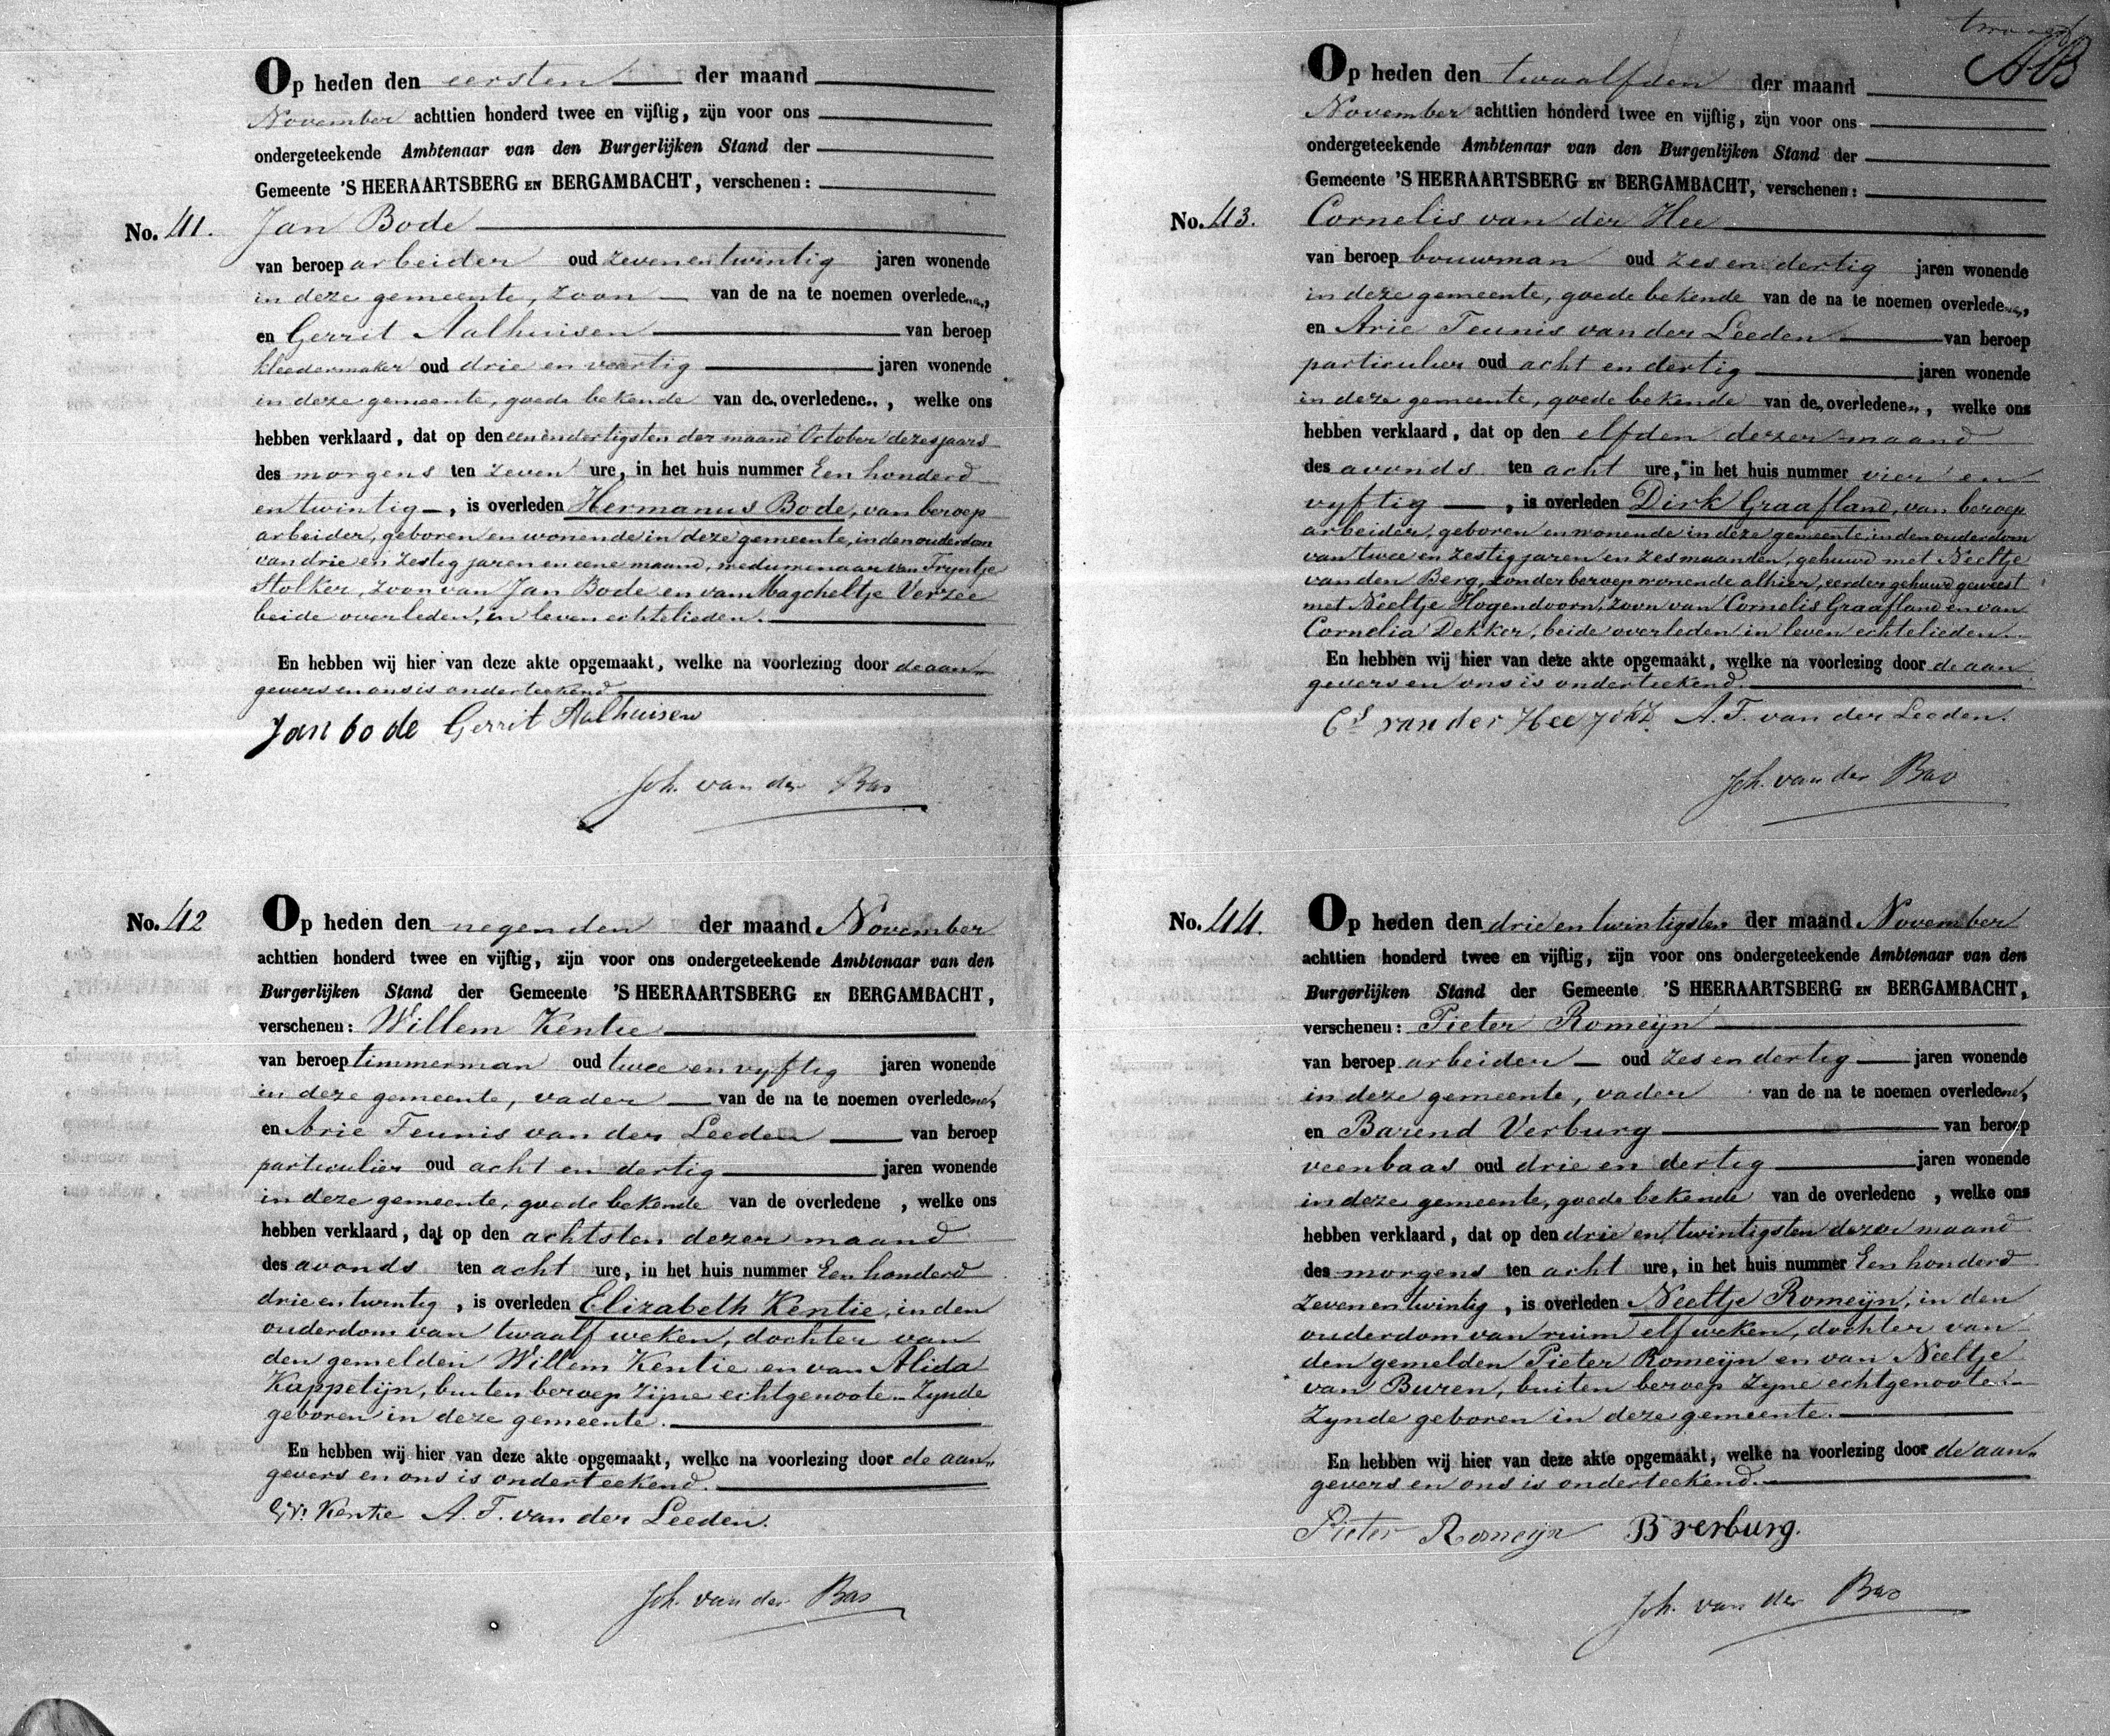 Op heden den eersten der maand
November achttien honderd twee en vijftig, zijn voor ons
ondergeteekende Ambtenaar van den Burgerlijken Stand der
Gemeente 'S HEERAARTSBERG EN BERGAMBACHT, verschenen:
No. 41. Jan Bode
van beroep arbeider oud zeven en twintig jaren wonende
in deze gemeente, zoon van de na te noemen overledene,
en Gerrit Aalhuisen van beroep
kleedermaker oud drie en veertig jaren wonende
in deze gemeente, goede bekende van de overledene, welke ons
hebben verklaard, dat op den een en dertigsten der maand October dezes jaars
des morgens ten zeven ure, in het huis nummer Een honderd
en twintig, is overleden Hermanus Bode, van beroep
arbeider, geboren en wonende in deze gemeente, in den ouderdom
van drie en zestig jaren en eene maand, weduwenaar van Tryntje
Stolker, zoon van Jan Bode en van Magcheltje Verzee
beide overleden, in leven echtelieden.
En hebben wij hier van deze akte opgemaakt, welke na voorlezing door de aan„
gevers en ons is onderteekend
Jan bode Gerrit Aalhuisen
Joh. van der Bas
No. 42 Op heden den negenden der maand November
achttien honderd twee en vijftig, zijn voor ons ondergeteekende Ambtenaar van den
Burgerlijken Stand der Gemeente 'S HEERAARTSBERG EN BERGAMBACHT,
verschenen: Willem Kentie
van beroep timmerman oud twee en vyftig jaren wonende
in deze gemeente, vader van de na te noemen overledene,
en Arie Teunis van der Leeden van beroep
particulier oud acht en dertig jaren wonende
in deze gemeente, goede bekende van de overledene, welke ons
hebben verklaard, dat op den achtsten dezer maand
des avonds ten acht ure, in het huis nummer Een honderd
drie en twintig, is overleden Elizabeth Kentie, in den
ouderdom van twaalf weken, dochter van
den gemelden Willem Kentie en van Alida
Kappetijn, buiten beroep zijne echtgenoote. Zynde
geboren in deze gemeente.
En hebben wij hier van deze akte opgemaakt, welke na voorlezing door de aan„
gevers en ons is onderteekend.
W. Kentie A. T. van der Leeden.
Joh. van der Bas
Op heden den twaalfden der maand
November achttien honderd twee en vijftig, zijn voor ons
ondergeteekende Ambtenaar van den Burgerlijken Stand der
Gemeente 'S HEERAARTSBERG EN BERGAMBACHT, verschenen:
No. 43. Cornelis van der Hee
van beroep bouwman oud zes en dertig jaren wonende
in deze gemeente, goede bekende van de na te noemen overledene,
en Arie Teunis van der Leeden van beroep
particulier oud acht en dertig jaren wonende
in deze gemeente, goede bekende van de overledene, welke ons
hebben verklaard, dat op den elfden dezer maand
des avonds ten acht ure, in het huis nummer vier en
vyftig, is overleden Dirk Graafland, van beroep
arbeider, geboren en wonende in deze gemeente, in den ouderdom
van twee en zestig jaren en zes maanden, gehuwd met Neeltje
van den Berg, zonder beroep wonende alhier, eerder gehuwd geweest
met Neeltje Hogendoorn, zoon van Cornelis Graafland en van
Cornelia Dekker, beide overleden in leven echtelieden.
En hebben wij hier van deze akte opgemaakt, welke na voorlezing door de aan„
gevers en ons is onderteekend.
Cs van der Hee A. T. van der Leeden.
Joh. van der Bas
No. 44. Op heden den drie en twintigsten der maand November
achttien honderd twee en vijftig, zijn voor ons ondergeteekende Ambtenaar van den
Burgerlijken Stand der Gemeente 'S HEERAARTSBERG EN BERGAMBACHT,
verschenen: Pieter Romeijn
van beroep arbeider oud zes en dertig jaren wonende
in deze gemeente, vader van de na te noemen overledene,
en Barend Verburg van beroep
veenbaas oud drie en dertig jaren wonende
in deze gemeente, goede bekende van de overledene, welke ons
hebben verklaard, dat op den drie en twintigsten dezer maand
des morgens ten acht ure, in het huis nummer Een honderd
zeven en twintig, is overleden Neeltje Romeijn, in den
ouderdom van ruim elf weken, dochter van
den gemelden Pieter Romeijn en van Neeltje
van Buren, buiten beroep zyne echtgenoote.
Zynde geboren in deze gemeente.
En hebben wij hier van deze akte opgemaakt, welke na voorlezing door de aan„
gevers en ons is onderteekend.
Pieter Romeijn B verburg.
Joh. van der Bas